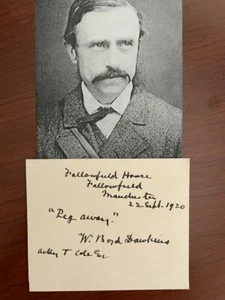 Fallowfield House
Fallowfield
Manchester
22. Sept. 1920
"Peg away."
W. Boyd Dawkins
T Cole Esq